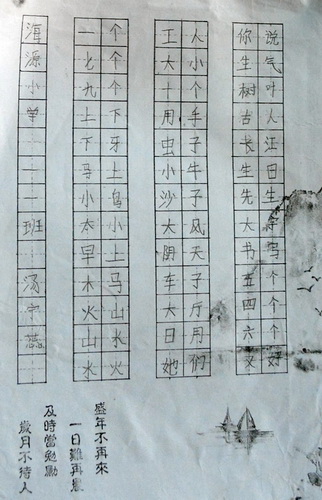 海源小学一一班
一个
七个
九个
上下
下牙
马土
小鸟
太小
早土
木马
火山
山水
水火
工人
大小
十个
用手
虫子
小牛
沙子
大风
阴天
车子
大斤
日用
她们
你说
生气
树叶
古人
长江
生日
先生
大字
书写
五个
四个
六个
又好
盛年不再來
一日難再晨
及時當勉勵
歲月不待人